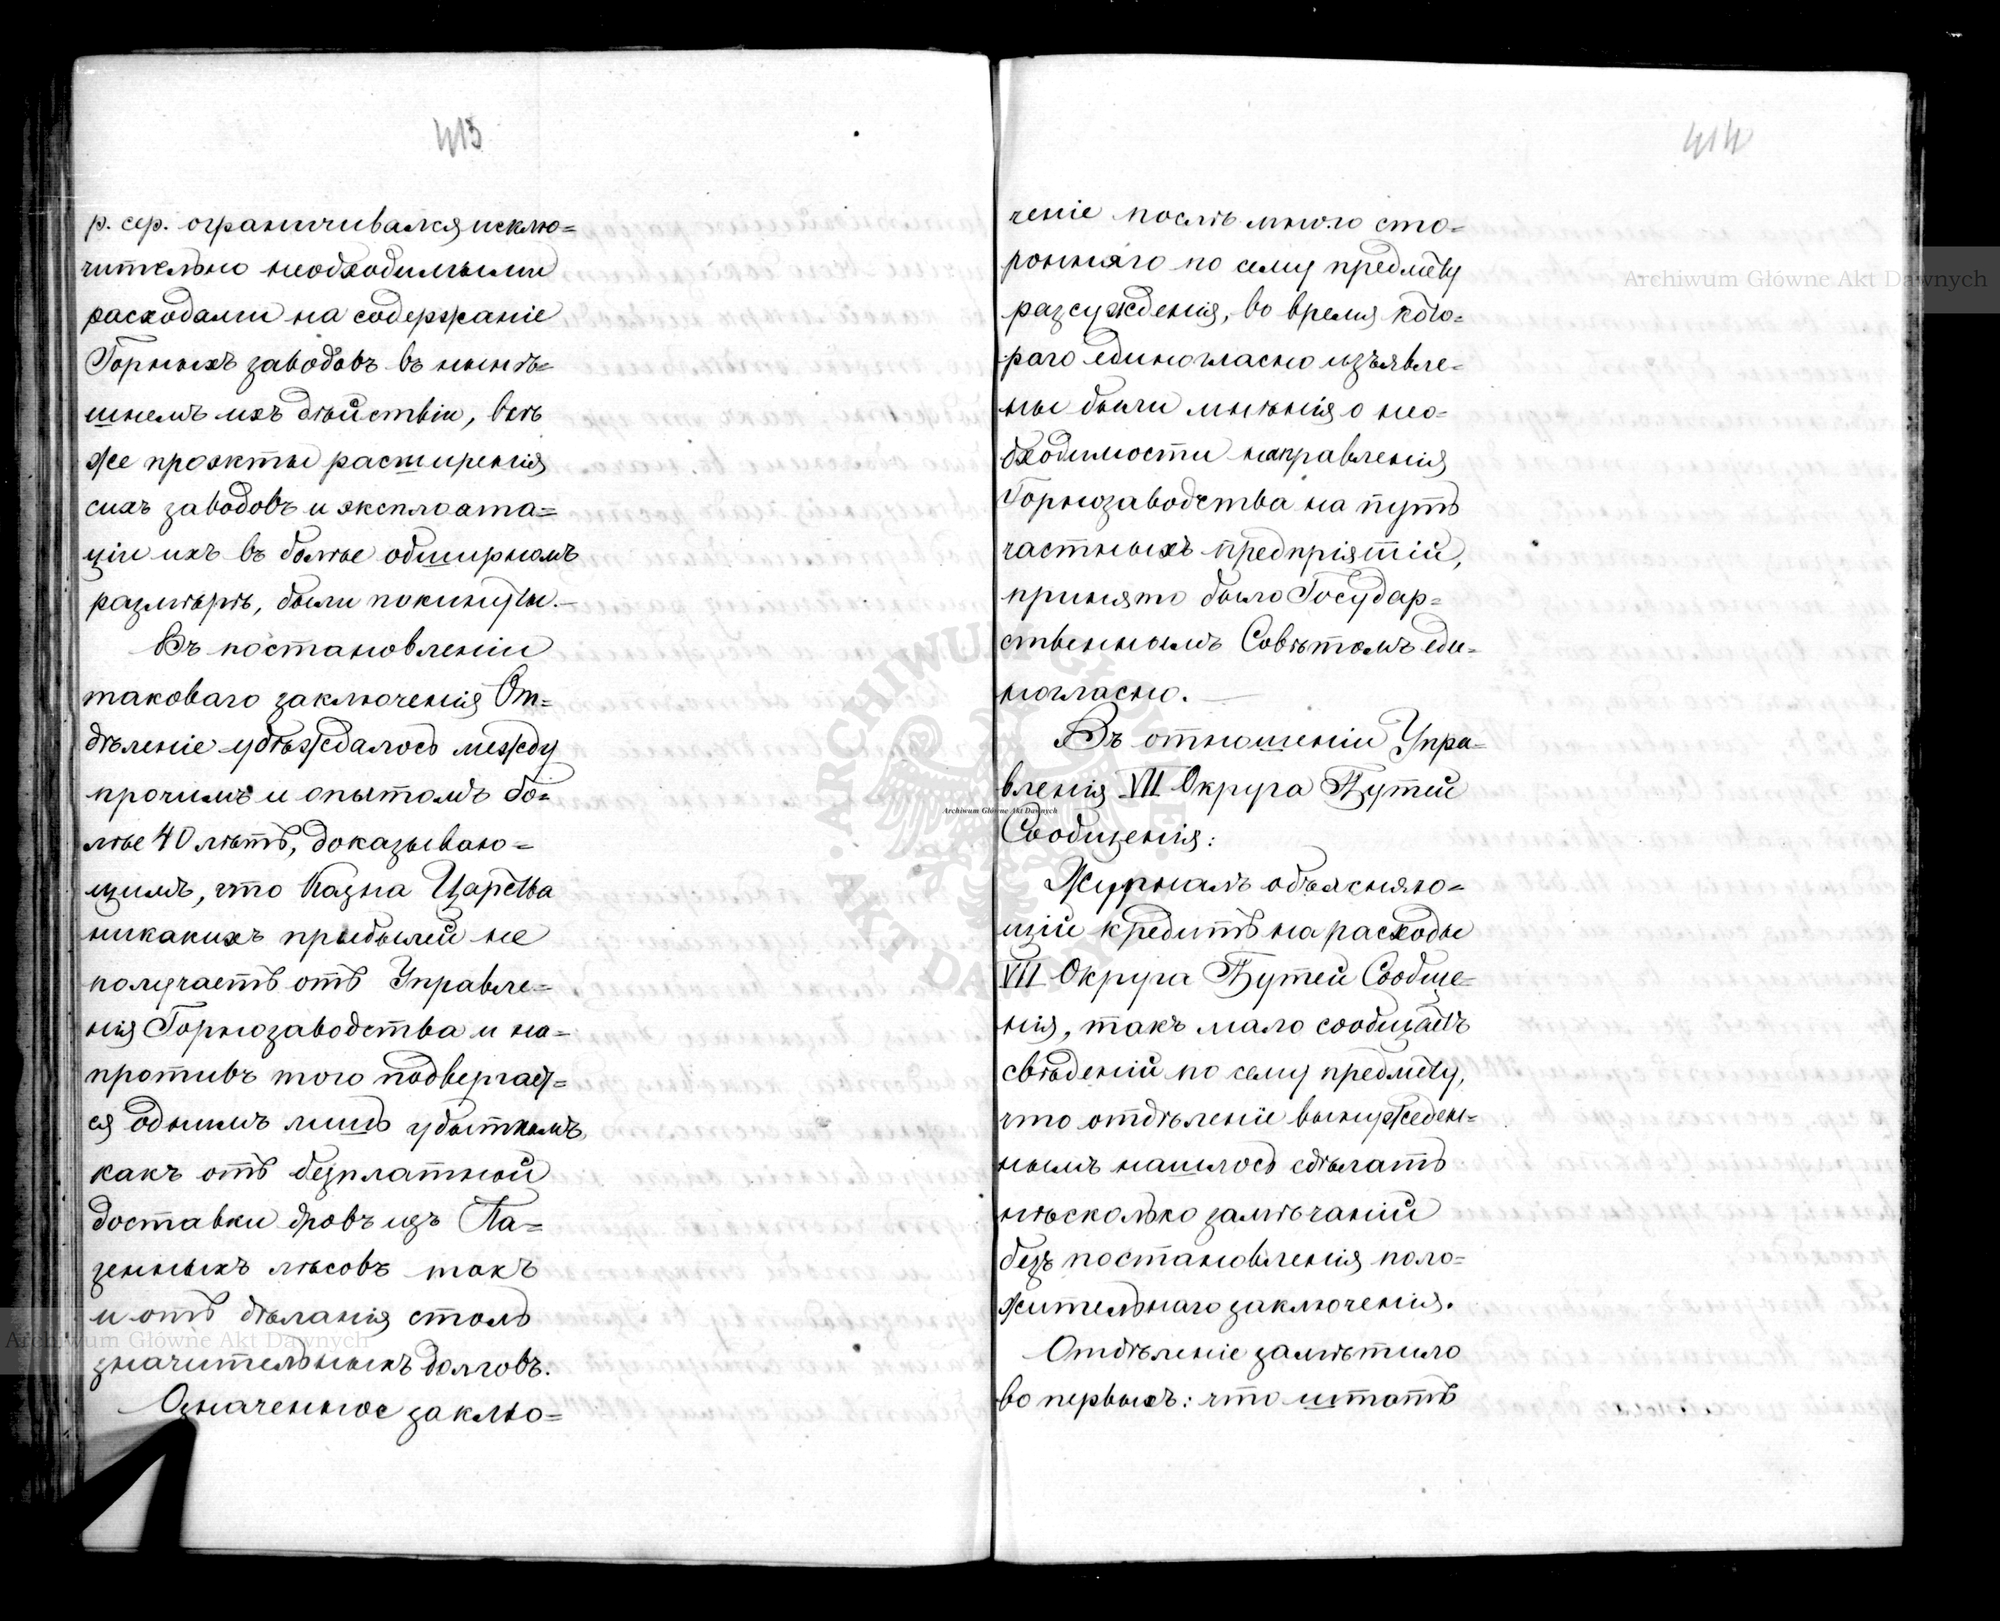 413
р. сер. ограничивался исклю=
чительно необходимыми
расходами на содержаніе
Горныхъ заводовъ въ нынѣ=
шнемъ ихъ дѣйствіи, всѣ
же проэкты расширенія
сихъ заводовъ и эксплоата=
ціи ихъ въ болѣе обширномъ
размѣрѣ, были покинуты.—
Въ постановленіи
таковаго заключенія От=
дѣленіе убѣждалось между
прочимъ и опытомъ бо=
лѣе 40 лѣтъ, доказываю=
щимъ, что Казна Царства
никакихъ прибылей не
получаетъ отъ Управле=
нія Горнозаводства и на=
противъ того подвергает=
ся однимъ лишь убыткамъ,
какъ отъ безплатной
доставки дровъ изъ Ка=
зенныхъ лѣсовъ такъ
и отъ дѣланія столь
значительныхъ долговъ.
Означенное заклю=
414
ченіе послѣ много сто=
ронняго по сему предмету
разсужденія, во время кото=
раго единогласно изъявле=
ны были мнѣнія о нео=
бходимости направленія
Горнозаводства на путь
частныхъ предпріятій,
принято было Государ=
ственнымъ Совѣтомъ еди=
ногласно.—
Въ отношеніи Упра=
вленія VII Округа Путей
Сообщенія:
Журналъ объясняю=
щій кредитъ на расходы
VII Округа Путей Сообще=
нія, такъ мало сообщаетъ
свѣденій по сему предмету,
что отдѣленіе вынужден=
нымъ нашлось сдѣлать
нѣсколько замѣчаній
безъ постановленія поло=
жительнаго заключенія.
Отдѣленіе замѣтило
во первыхъ: что штатъ
Archiwum Główne Akt Dawnych
Archiwum Główne Akt Dawnych
Archiwum Główne Akt Dawnych
ARCHIWUM GŁÓWNE
AKT DAWNYCH